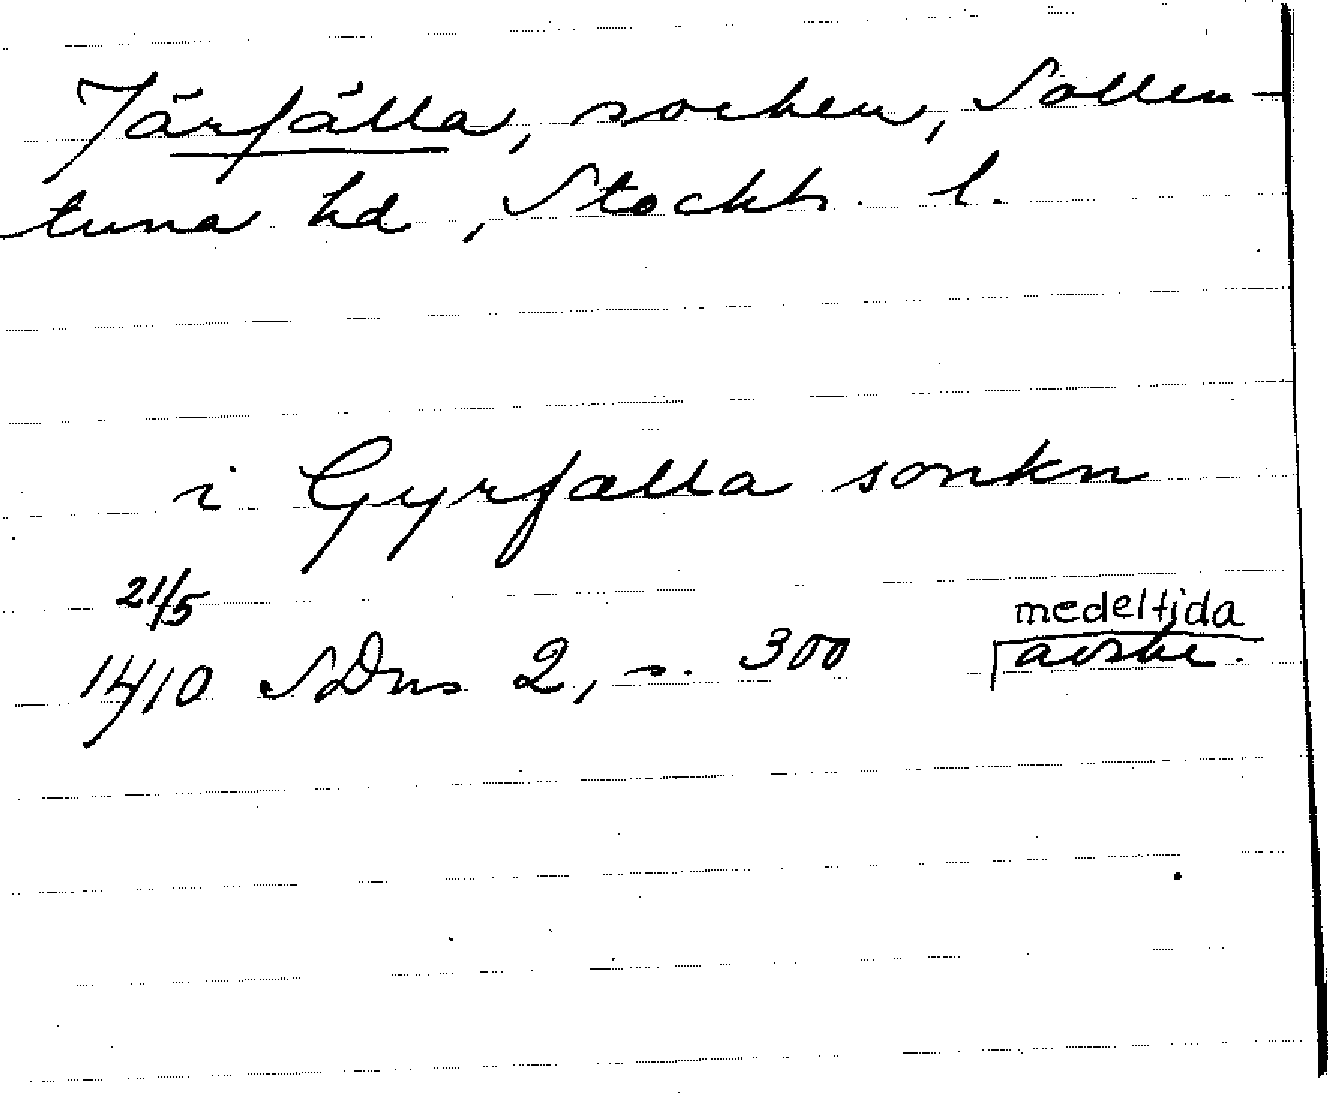 Järfälla, socken, Sollen-
tuna hd, Stockh. l.
i Gyrfælla sonkn
21/5
1410 SDns 2, s. 300
medeltida
avskr.